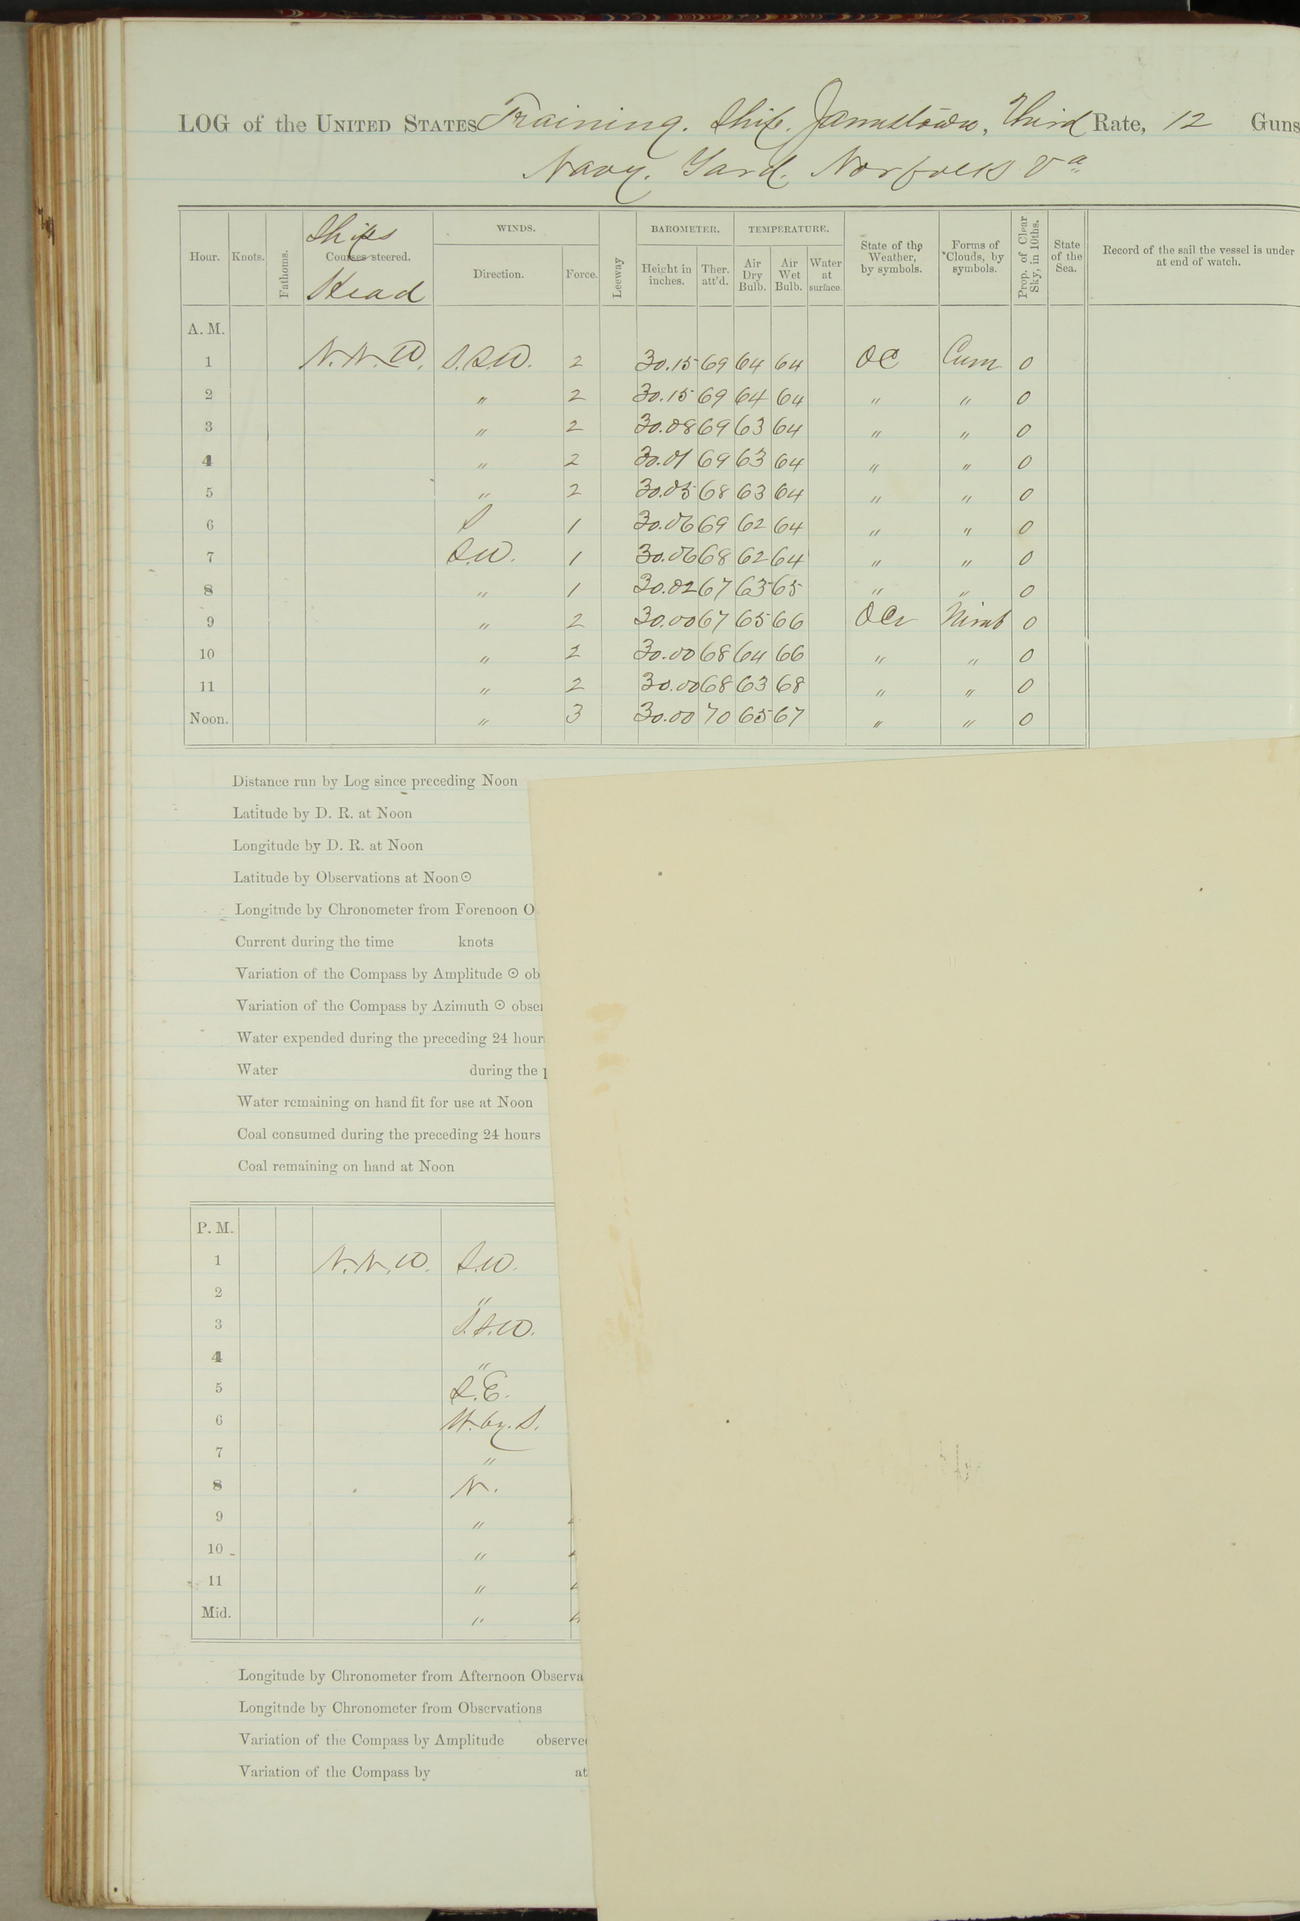 LOG of the UNITED STATES Training Ship Jamestown, Third Rate, 12 Guns
Navy Yard Norfolk Va
Hour. Knots. Fathoms. Ships Courses steered. Head WINDS. Direction. Force. Leeway BAROMETER. Height in inches. Ther. att'd. TEMPERATURE. Air Dry Bulb. Air Wet Bulb. Water at surface. State of the Weather, by symbols. Forms of Clouds, by symbols. Prop. of Clear Sky, in 10ths. State of the Sea. Record of the sail the vessel is under at end of watch.
A. M.
1 N.N.W. S.S.W. 2 30.15 69 64 64 OC Cum 0
2 " 2 30.15 69 64 64 " " 0
3 " 2 30.08 69 63 64 " " 0
4 " 2 69 63 64 " " 0
5 " 2 30.05 68 63 64 " " 0
6 S 1 30.06 69 62 64 " " 0
7 S.W. 1 30.06 68 62 64 " " 0
8 " 1 30.02 67 63 65 " " 0
9 " 2 30.00 67 65 66 OCr Nimb 0
10 " 2 30.00 68 64 66 " " 0
11 " 2 30.00 68 63 68 " " 0
Noon. " 3 30.00 70 65 67 " " 0
Distance run by Log since preceding Noon
Latitude by D. R. at Noon
Longitude by D. R. at Noon
Latitude by Observations at Noon ☉
Longitude by Chronometer from Forenoon O
Current during the time knots
Variation of the Compass by Amplitude ☉ ob
Variation of the Compass by Azimuth ☉ obser
Water expended during the preceding 24 hour
Water during the p
Water remaining on hand fit for use at Noon
Coal consumed during the preceding 24 hours
Coal remaining on hand at Noon
P. M.
1 N.N.W. S.W.
2 "
3 S.S.W.
4 "
5 S.E.
6 W. by. S.
7 "
8 N.
9 "
10 "
11 "
Mid. "
Longitude by Chronometer from Afternoon Observa
Longitude by Chronometer from Observations
Variation of the Compass by Amplitude observed
Variation of the Compass by at